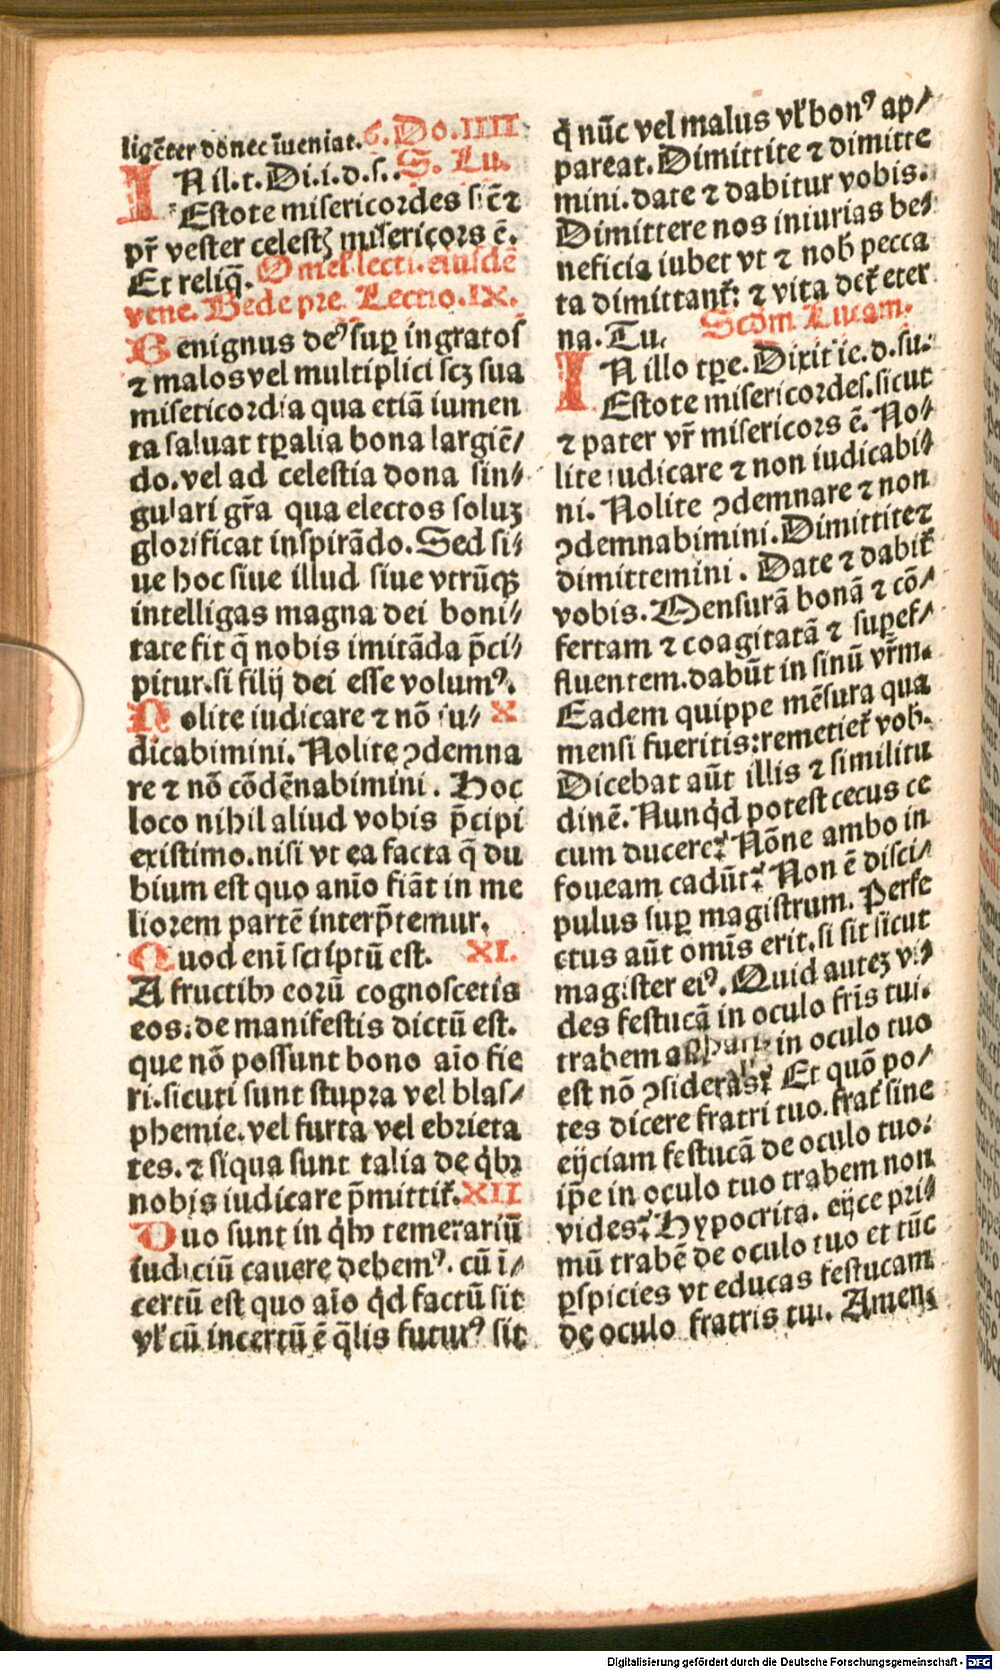 ligēter donec īueniat. 6. Do. IIII
IN il. t. Di. i. d. s. . S. Lu.
Estote misericordes sic̄ ⁊
pr̄ vester celestꝫ misericors ē.
Et reliq̄. Omel. lecti. eiusdē
vene. Bede pre. Lectio. IX.
Benignus deꝰ suꝑ ingratos
⁊ malos vel multiplici scꝫ sua
misericordia qua etiā iumen
ta saluat tꝑalia bona largiē/
do. vel ad celestia dona sin/
gulari gr̄a qua electos soluꝫ
glorificat inspirādo. Sed si/
ue hoc siue illud siue vtrūqꝫ
intelligas magna dei boni/
tate fit q̄ nobis imitāda p̄ci/
pitur. si filij dei esse volumꝰ.
Nolite iudicare ⁊ nō iu/ X
dicabimini. Nolite ꝯdemna
re ⁊ nō cōdēnabimini. Hoc
loco nihil aliud vobis p̄cipi
existimo. nisi vt ea facta q̄ du
bium est quo anīo fiāt in me
liorem partē interp̄temur.
Quod enī scriptū est. XI.
A fructibꝫ eorū cognoscetis
eos: de manifestis dictū est.
que nō possunt bono aīo fie
ri. sicuti sunt stupra vel blas/
phemie. vel furta vel ebrieta
tes. ⁊ siqua sunt talia de q̇bꝫ
nobis iudicare p̄mittit̄. XII
Duo sunt in q̇bꝫ temerariū
iudiciū cauere debemꝰ. cū ī/
certū est quo aīo q̇d factū sit
vl̄ cū incertū ē q̄lis futurꝰ sit
q̇ nūc vel malus vl̄ bonꝰ ap/
pareat. Dimittite ⁊ dimitte
mini. date ⁊ dabitur vobis.
Dimittere nos iniurias be/
neficia iubet vt ⁊ nob̄ pecca
ta dimittant̄: ⁊ vita det̄ eter
na. Tu. Scd̄m Lucam.
IN illo tꝑe. Dixit ie. d. su.
Estote misericordes. sicut
⁊ pater vr̄ misericors ē. No/
lite iudicare ⁊ non iudicabi/
ni. Nolite ꝯdemnare ⁊ non
ꝯdemnabimini. Dimittite ⁊
dimittemini. Date ⁊ dabit̄
vobis. Mensurā bonā ⁊ cō/
fertam ⁊ coagitatā ⁊ suꝑef/
fluentem. dabūt in sinū vr̄m.
Eadem quippe mēsura qua
mensi fueritis: remetiet̄ vob.
Dicebat aūt illis ⁊ similitu
dinē. Nunq̇d potest cecus ce
cum ducere? Nōne ambo in
foueam cadūt? Non ē disci/
pulus suꝑ magistrum. Perfe
ctus aūt omīs erit. si sit sicut
magister eiꝰ. Quid auteꝫ vi/
des festucā in oculo fr̄is tui.
trabem in oculo tuo
est nō ꝯsideras? Et quō po/
tes dicere fratri tuo. frat̄ sine
eijciam festucā de oculo tuo:
ip̄e in oculo tuo trabem non
vides? Hypocrita. eijce pri/
mū trabē de oculo tuo et tūc
ꝑspicies vt educas festucam
de oculo fratris tui. Amen.
Digitalisierung gefördert durch die Deutsche Forschungsgemeinschaft - DFG